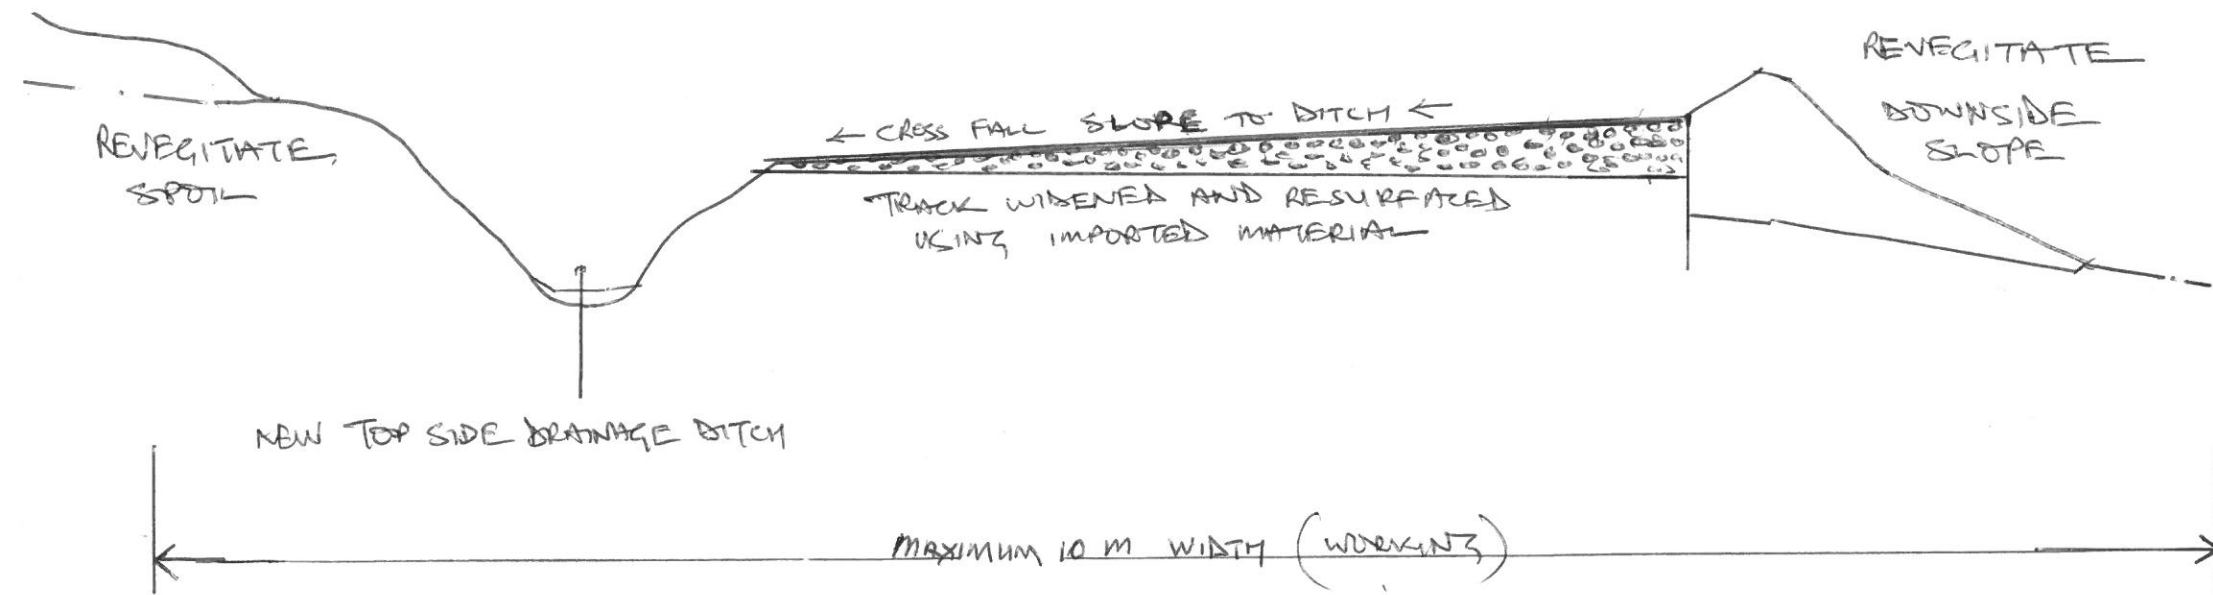 REVEGITATE
DOWNSIDE
SLOPE
← CROSS FALL SLOPE TO DITCH ←
REVEGITATE
SPOIL
TRACK WIDENED AND RESURFACED
USING IMPORTED MATERIAL
NEW TOP SIDE DRAINAGE DITCH
MAXIMUM 10 M WIDTH (WORKING)